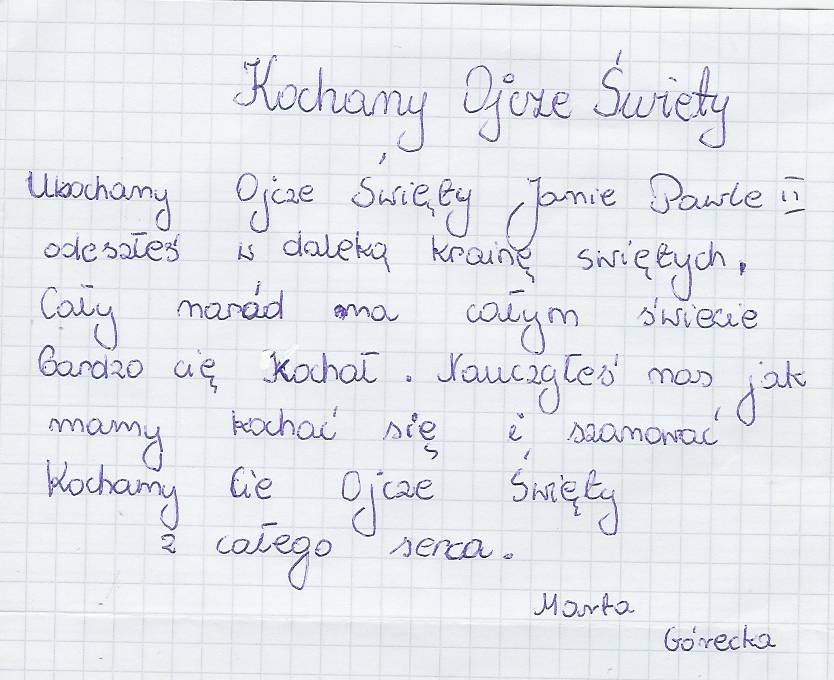 Kochany Ojcze Święty
Ukochany Ojcze Święty Janie Pawle II
odeszłeś w daleką krainę świętych.
Cały naród na całym świecie
bardzo cię kochał. Nauczyłeś nas jak
mamy kochać się i szanować
Kochamy Cie Ojcze Święty
z całego serca.
Marta
Górecka